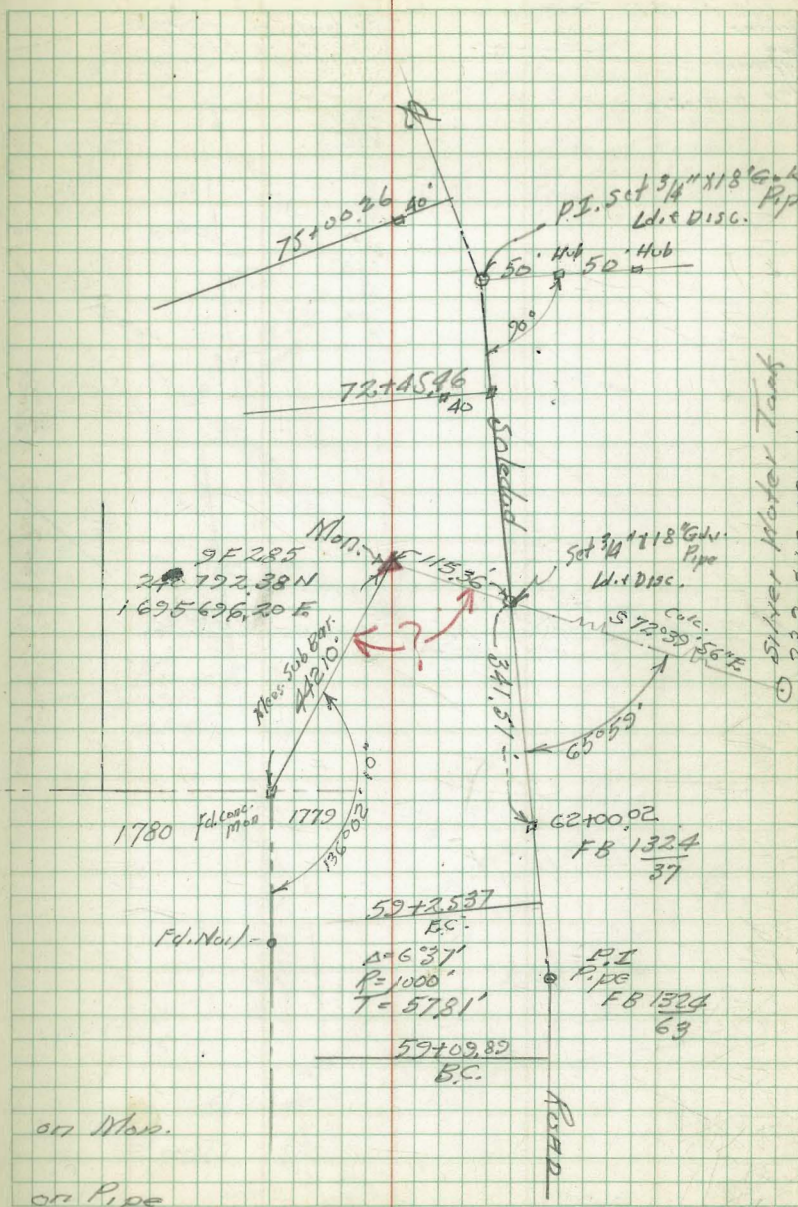 ℄
75+00.26
40'
P.I. Set 3/4" X 18" Galv.
Pipe
Ld. & Disc.
50' Hub 50' Hub
90°
72+45.46
40
Soledad
Silver Water Tank
9F 285
792.38 N
1 695 696.20 E
Mon.
115.36'
Set 3/4" X 18" Galv.
Pipe
Ld. & Disc.
Calc.
S 72°39'56" E
?
Meas. Sub Bar.
442.10'
341.51'
65°59'
136°02'10"
1780
Fd. Conc.
Mon
1779
62+00.02
FB 1324
37
59+25.37
E.C.
Fd. Nail
Δ=6°37'
R=1000'
T=57.81'
P.I
Pipe
FB 1324
63
59+09.89
B.C.
ROAD
on Mon.
on Pipe